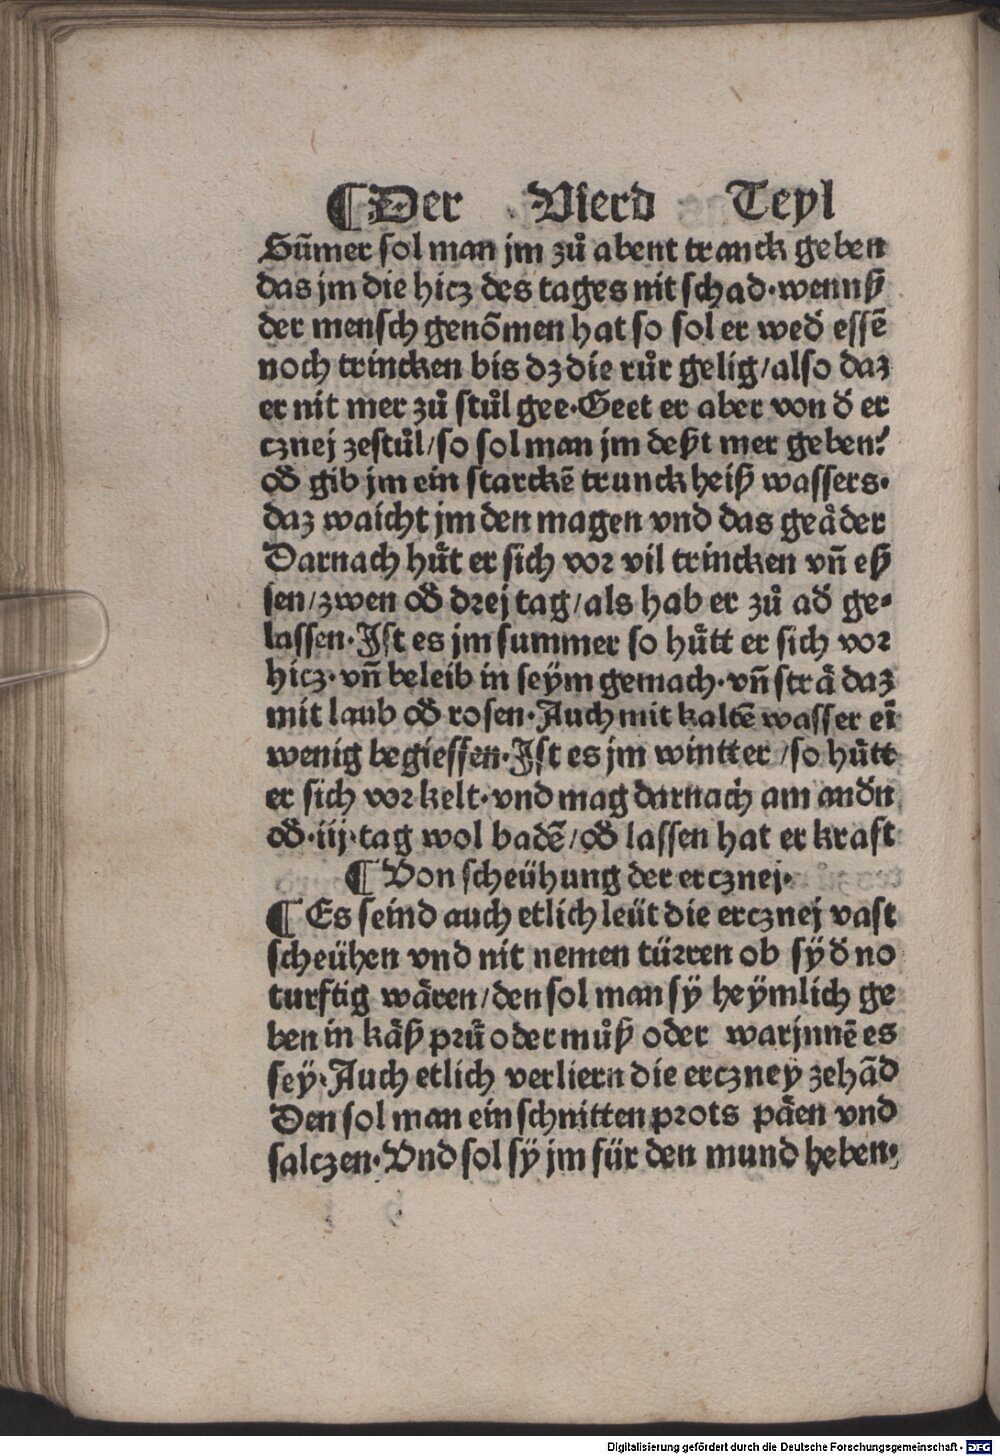 ¶Der Vierd Teyl
Sūmer sol man jm zů abent tranck geben
das jm die hicz des tages nit schad·wennß
der mensch genōmen hat so sol er wed̄ essē
noch trincken bis dz die růr gelig/also daz
er nit mer zů stůl gee·Geet er aber von d̄ er
cznej zestůl/so sol man jm deßt mer geben:
od̄ gib jm ein starckē trunck heiß wassers·
daz waicht jm den magen vnd das geåder
Darnach hůt er sich vor vil trincken vn̄ eß
sen/zwen od̄ drej tag/als hab er zů ad̄ ge-
lassen·Ist es jm summer so hůtt er sich vor
hicz·vn̄ beleib in seÿm gemach·vn̄ strå daz
mit laub od̄ rosen·Auch mit kaltē wasser eī
wenig begiessen·Ist es jm wintter/so hůtt
er sich vor kelt·vnd mag darnach am and̄n
od̄·iij·tag wol badē/od̄ lassen hat er kraft
¶Von scheühung der ercznej·
¶Es seind auch etlich leüt die ercznej vast
scheühen vnd nit nemen türren ob sÿ d̄ no
turftig wåren/den sol man sÿ heÿmlich ge
ben in kåß prů oder můß oder warjnnē es
sey·Auch etlich verliern die erczney zehād
Den sol man ein schnitten prots påen vnd
salczen·Vnd sol sÿ jm für den mund heben·
Digitalisierung gefördert durch die Deutsche Forschungsgemeinschaft - DFG